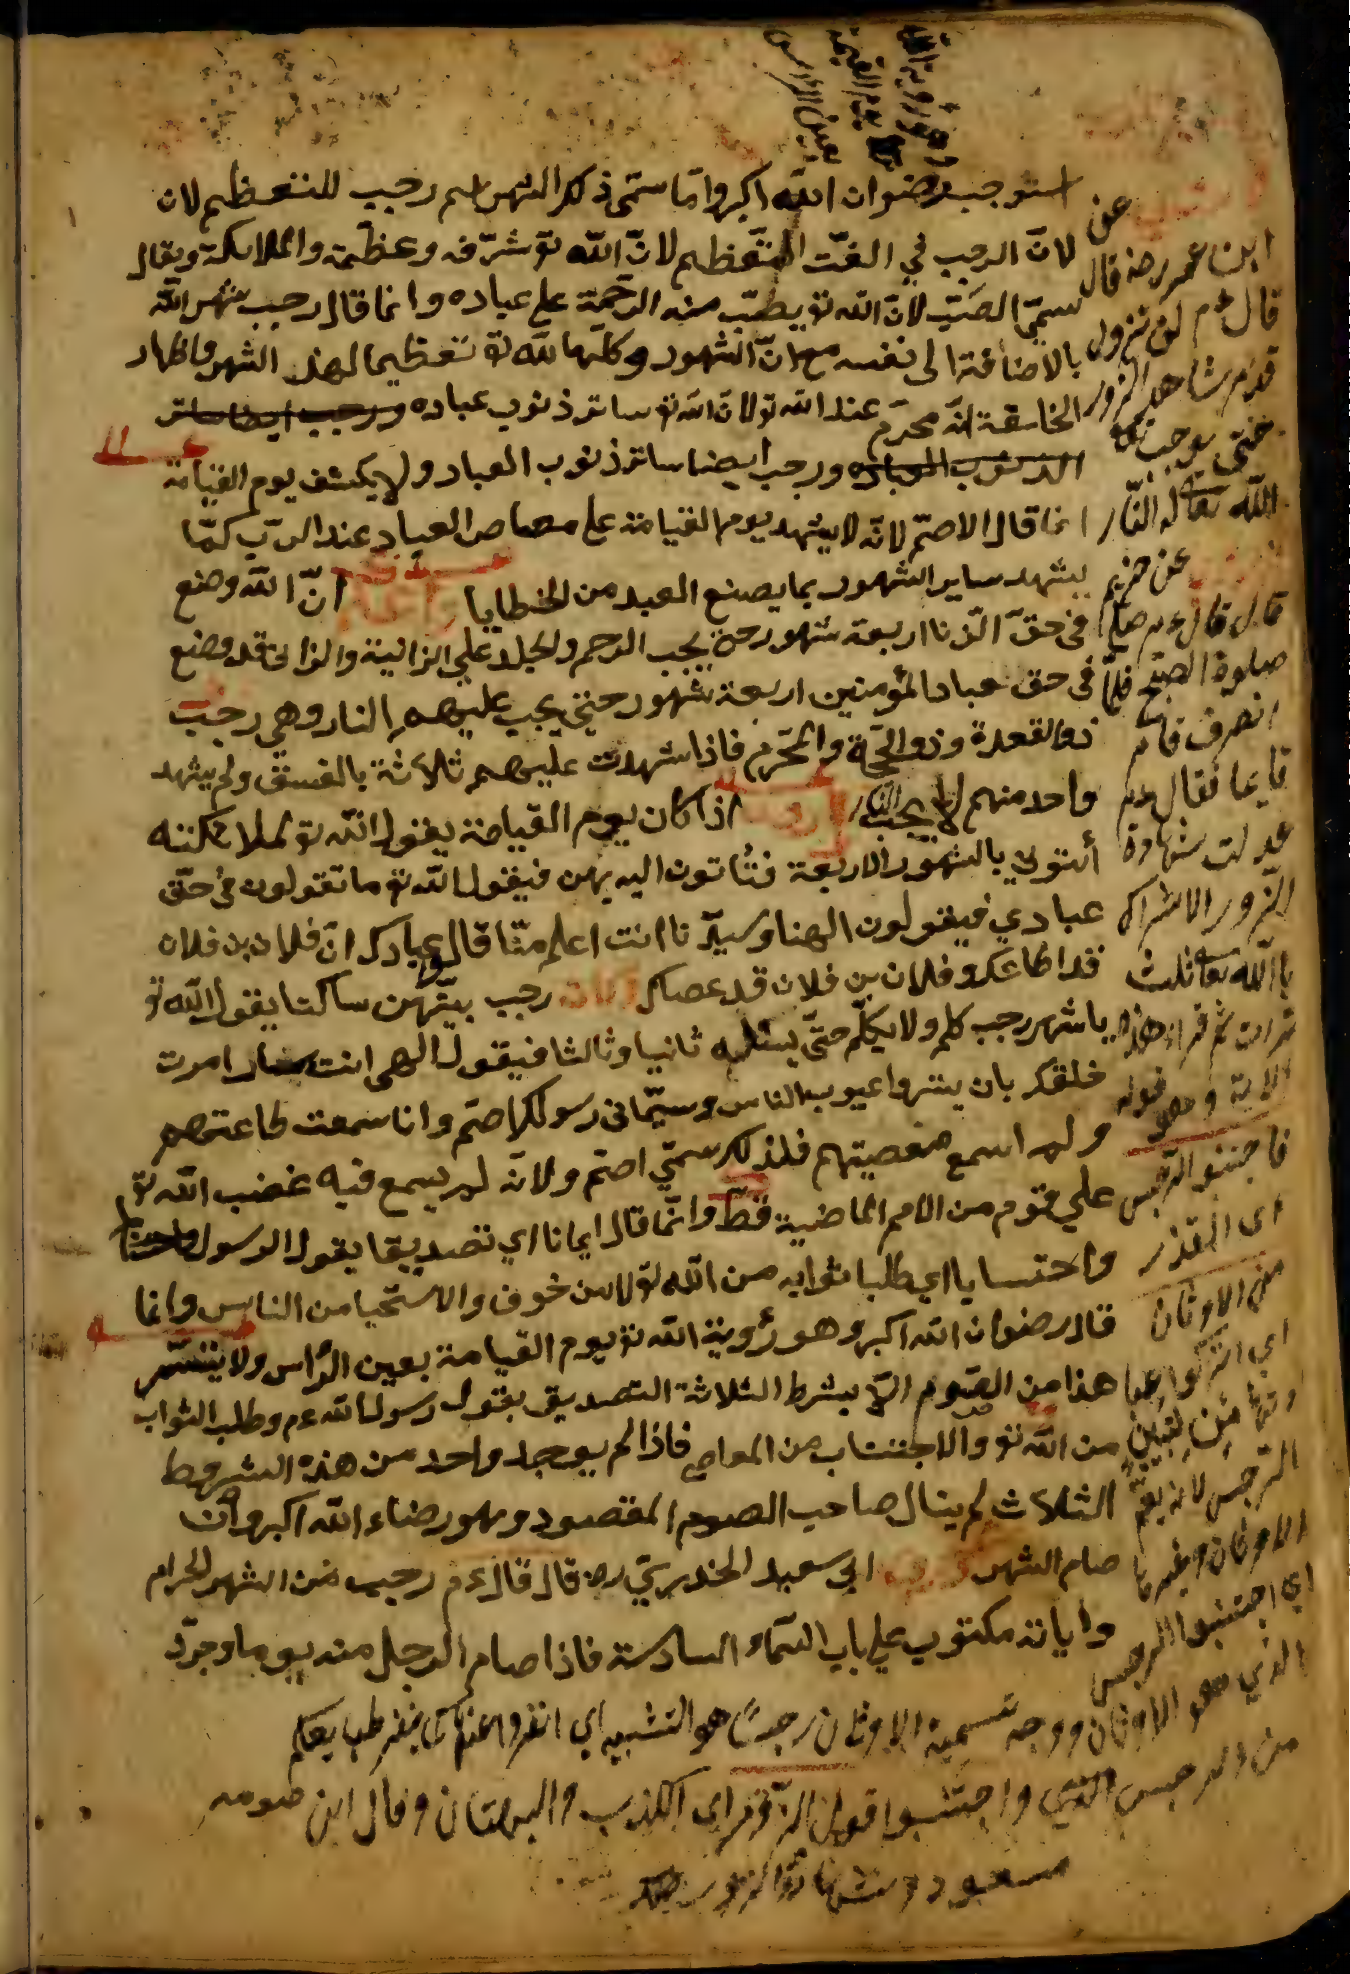 استوجب رضوان الله اكبر وانما سمي ذلك الشهر باسم رجب للتعظيم لان
لان الرجب في الغت التعظيم لان الله تو شرفه وعظمه والملائكة ويقال
سمي الصب لان الله تو يصب منه الرحمة على عباده وانما قال رجب شهر الله
بالاضافة الى نفسه مع ان الشهور وكلها لله تو تعظيما لهذ الشهر واظهار
انه محرم عند الله تو لان الله تو ساتر ذنوب عباده ورجب ايضا ساتر
الذنوب العباده ورجب ايضا ساتر ذنوب العباد ولا يكشف يوم القيامة
انما قال الاصم لانه لا يشهد يوم القيامة على معاصي العباد عند الرب كما
يشهد ساير الشهور بما يصنع العبد من الخطايا ان الله وضع
في حق الزنا اربعة شهور حتى يجب الرجم والجلد على الزانية والزاني قد وضع
في حق عباد المؤمنين اربعة شهور حتى يجب عليهم النار وهي رجب
ذو القعدة وذو الحجة والمحرم فاذا شهدت عليهم ثلاثة بالفسق ولم يشهد
واحد منهم لا يجب النار اذا كان يوم القيامة يقول الله تو لملائكته
أئتوني بالشهور الاربعة فتأتون اليه بهن فيقول الله تو ما تقولون في حق
عبادي فيقولون الهنا وسيدنا انت اعلم منا قال عبادك ان فلان بن فلان
قد اطاعك وفلان بن فلان قد عصاك رجب بينهن ساكتا يقول الله تو
يا شهر رجب كلم ولا يكلم حتى يسئله ثانيا وثالثا فيقول الهي انت ستار امرت
خلقك بان يستروا عيوب الناس وسماني رسولك اصم وانا سمعت طاعتهم
ولم اسمع معصيتهم فلذلك سمي اصم ولانه لم يسمع فيه غضب الله تو
على قوم من الامم الماضية قط وانما قال ايمانا اي تصديقا بقول الرسول
واحتسابا اي طلبا ثوابه من الله تو لا من خوف والاستحيا من الناس وانما
قال رضوان الله اكبر وهو رؤية الله تو يوم القيامة بعين الرأس ولا يتيسر
هذا من الصوم الا بشرط الثلاثة التصديق بقول رسول الله عم وطلب الثواب
من الله تو والاجتناب من المعاصي فاذا لم يوجد واحد من هذه الشروط
الثلاث لم ينال صاحب الصوم المقصود وهو رضاء الله اكبر وان
صام الشهر ابي سعيد الخدري رض قال قال عم رجب من الشهر الحرام
وايانه مكتوب على باب السماء السادسة فاذا صام الرجل منه يوما وجرد
عن
ابن عمر رض قال
قال عم لن تزول
قدم شاهد الزور
حتى يوجب
الله تعالى له النار
عن خزيم
قال قال عم صلى
صلوة الصبح فلما
انصرف قام
قايما فقال عم
عدلت شهادة
الزور الاشراك
بالله تعا ثلث
مرات ثم قرأ هذه
الاية وهو قوله
فاجتنبو الرجس
اي القذر
من الاوثان
الرجس لانه يعم
الاوثان وغيرها
اي اجتنبوا الرجس
الذي هو الاوثان ووجه تسمية الاوثان رجسا هو التشبيه اي انفروا عنها كما ينفر طبايعكم
من الرجس واجتنبوا قول الزور اي الكذب والبهتان وقال ابن
مسعود شهادة الزور